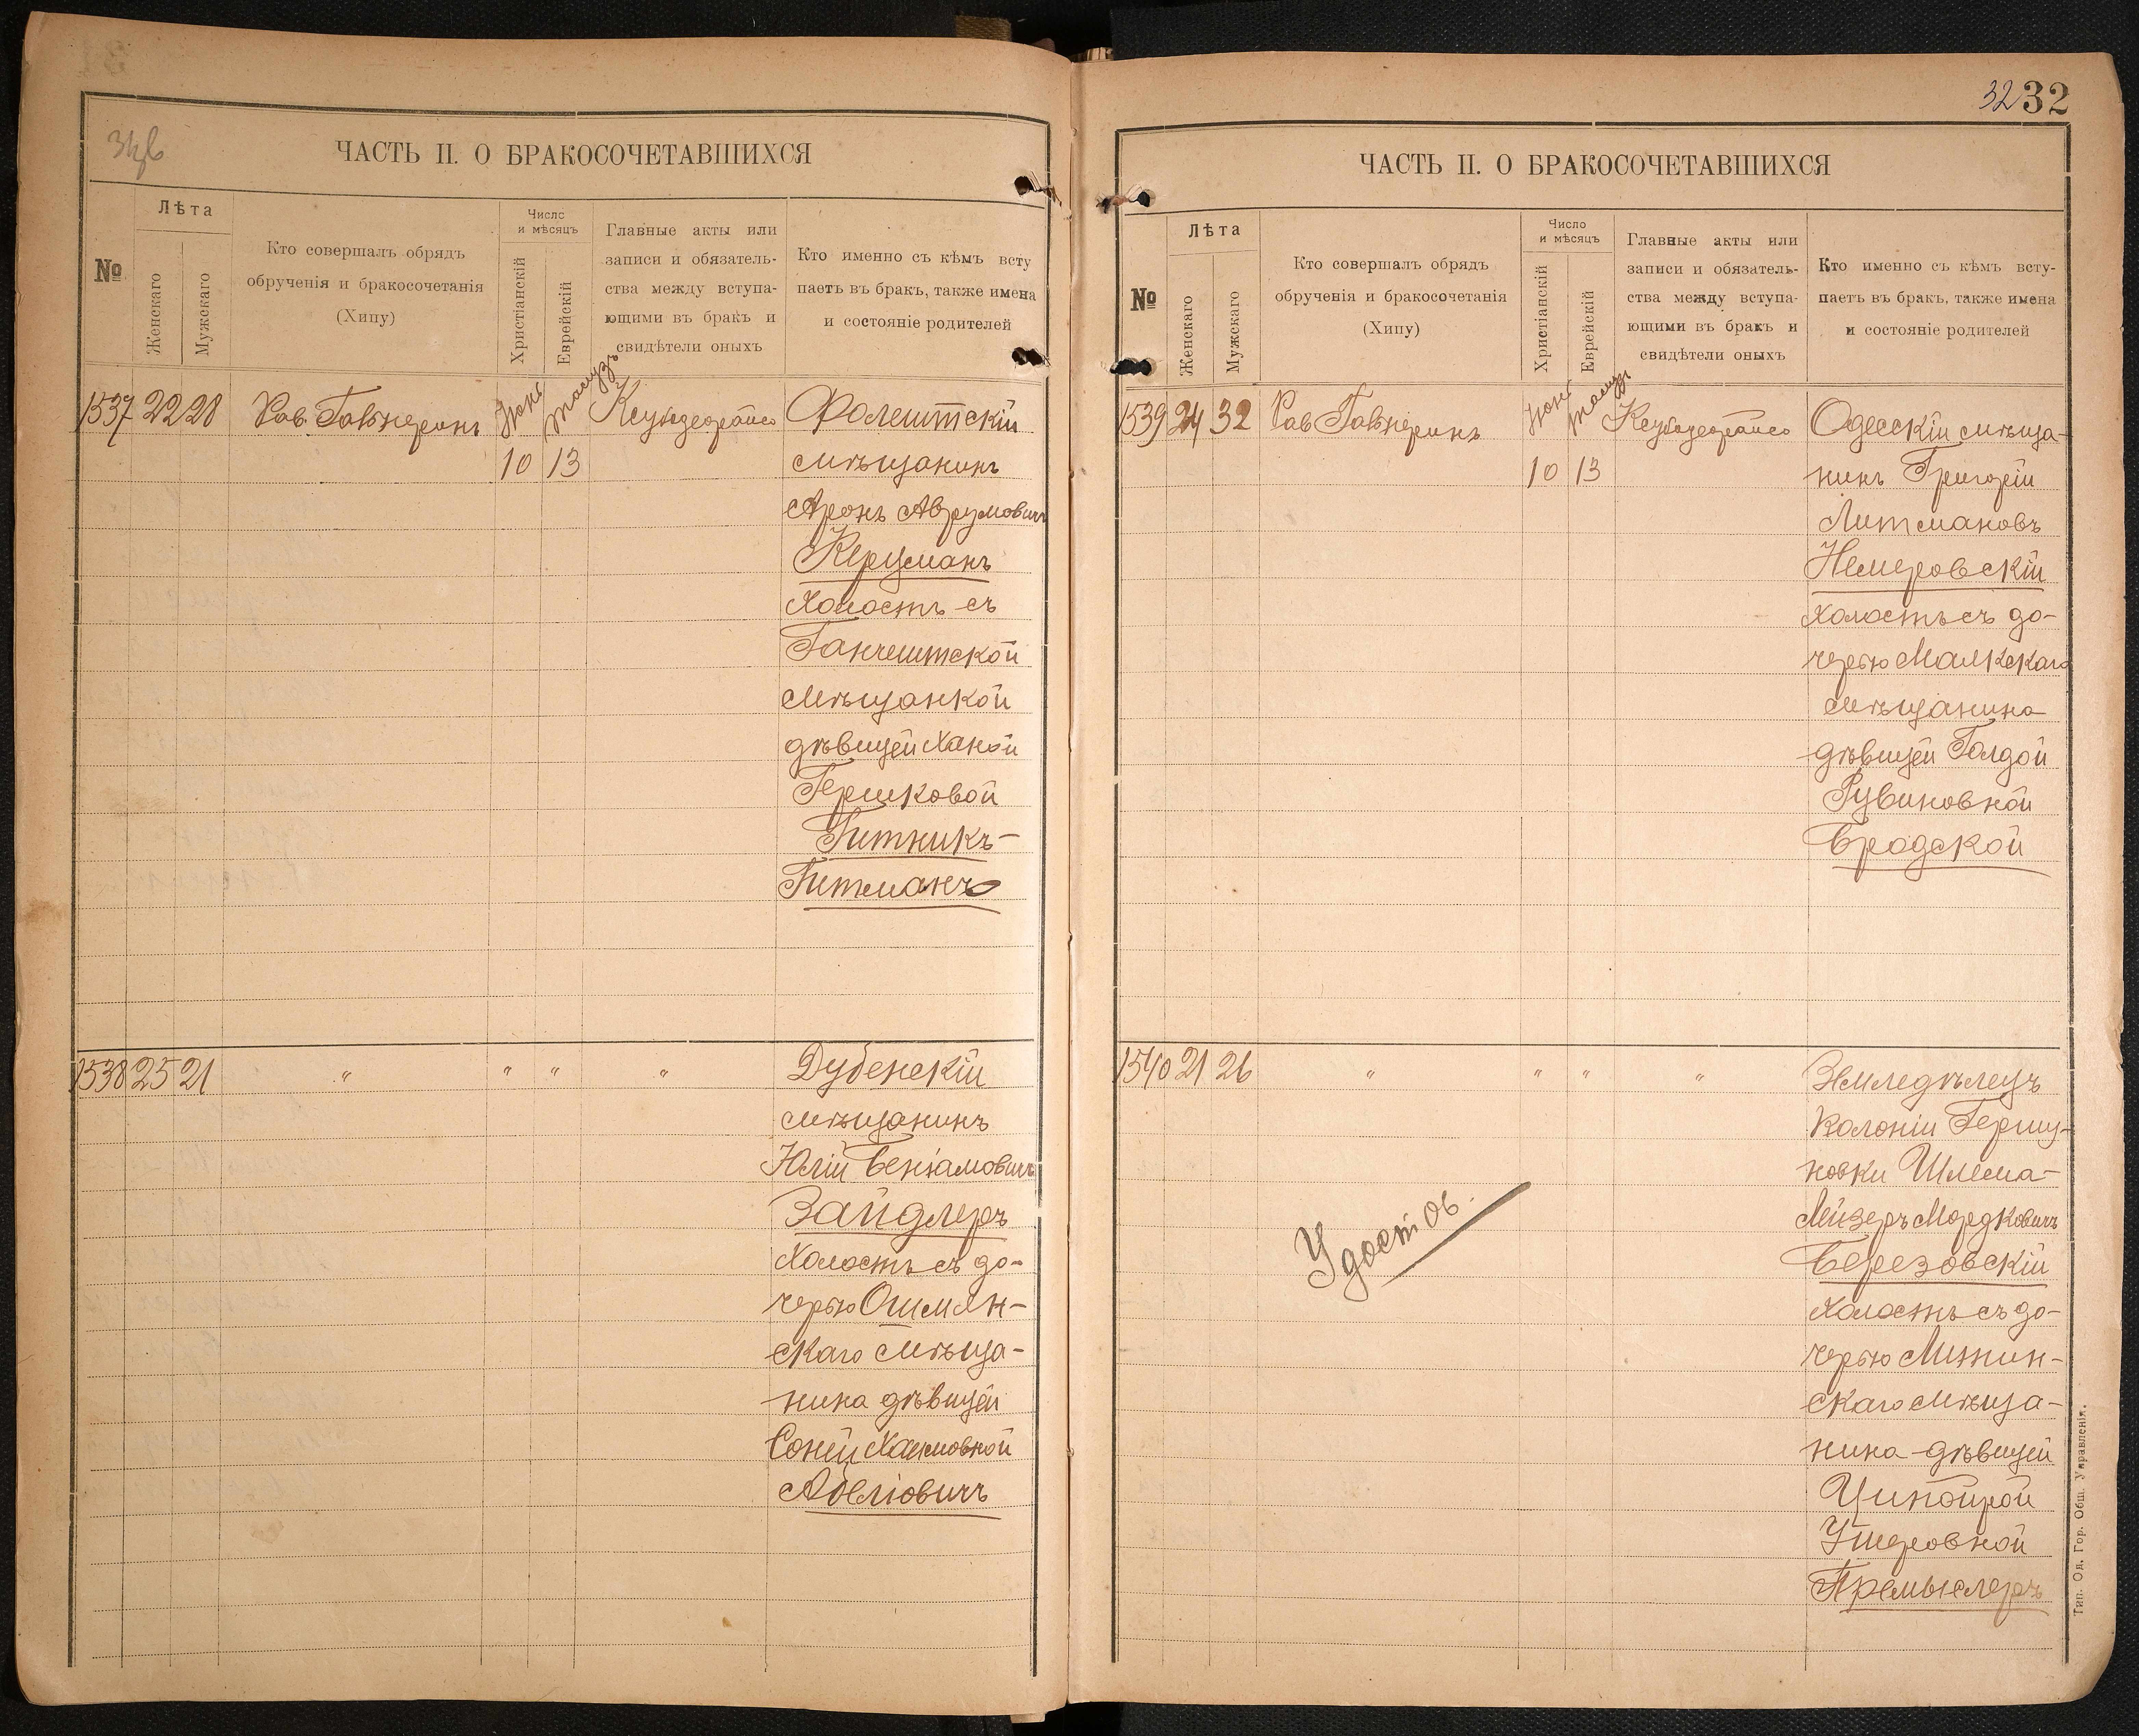 31б
ЧАСТЬ II. О БРАКОСОЧЕТАВШИХСЯ
№
Лѣта
Женскаго
Мужскаго
Кто совершалъ обрядъ
обрученія и бракосочетанія
(Хипу)
Число
и мѣсяцъ
Христіанскій
Еврейскій
Главные акты или
записи и обязатель-
ства между вступа-
ющими въ бракъ и
свидѣтели оныхъ
Кто именно съ кѣмъ всту
паетъ въ бракъ, также имена
и состояніе родителей
1537 22 28 Рав. Іюнь Тамузъ Фолештскій
10 13 мѣщанинъ
Аронъ Аврумовичъ
Керцманъ
холостъ съ
Ганчештской
мѣщанкой
дѣвицей Ханой
Гершковой
Гитникъ-
Гитманъ
1538 25 21 " " " " Дубенскій
мѣщанинъ
Юлій Беніамовичъ
Зайдлеръ
холостъ съ до-
черью Ошмян-
скаго мѣща-
нина дѣвицей
Соней Хаимовной
Абеліовичъ
32 32
ЧАСТЬ II. О БРАКОСОЧЕТАВШИХСЯ
№
Лѣта
Женскаго
Мужскаго
Кто совершалъ обрядъ
обрученія и бракосочетанія
(Хипу)
Число
и мѣсяцъ
Христіанскій
Еврейскій
Главные акты или
записи и обязатель-
ства между вступа-
ющими въ бракъ и
свидѣтели оныхъ
Кто именно съ кѣмъ всту-
паетъ въ бракъ, также имена
и состояніе родителей
1539 24 32 Рав Іюнь Тамузъ Одесскій мѣща-
10 13 нинъ Григорій
Литмановъ
Немировскій
холостъ съ до-
черью
мѣщанина
дѣвицей Голдой
Рувиновной
Бродской
1540 21 26 " " " " Земледѣлецъ
колоніи Гершу-
новки Шлема-
Лейзеръ Мордковичъ
Березовскій
холостъ съ до-
черью
скаго мѣща-
нина дѣвицей
Ципойрой
Ушеровной
Премыслеръ
Удостов.
Тип. Од. Гор. Общ. Управленія.